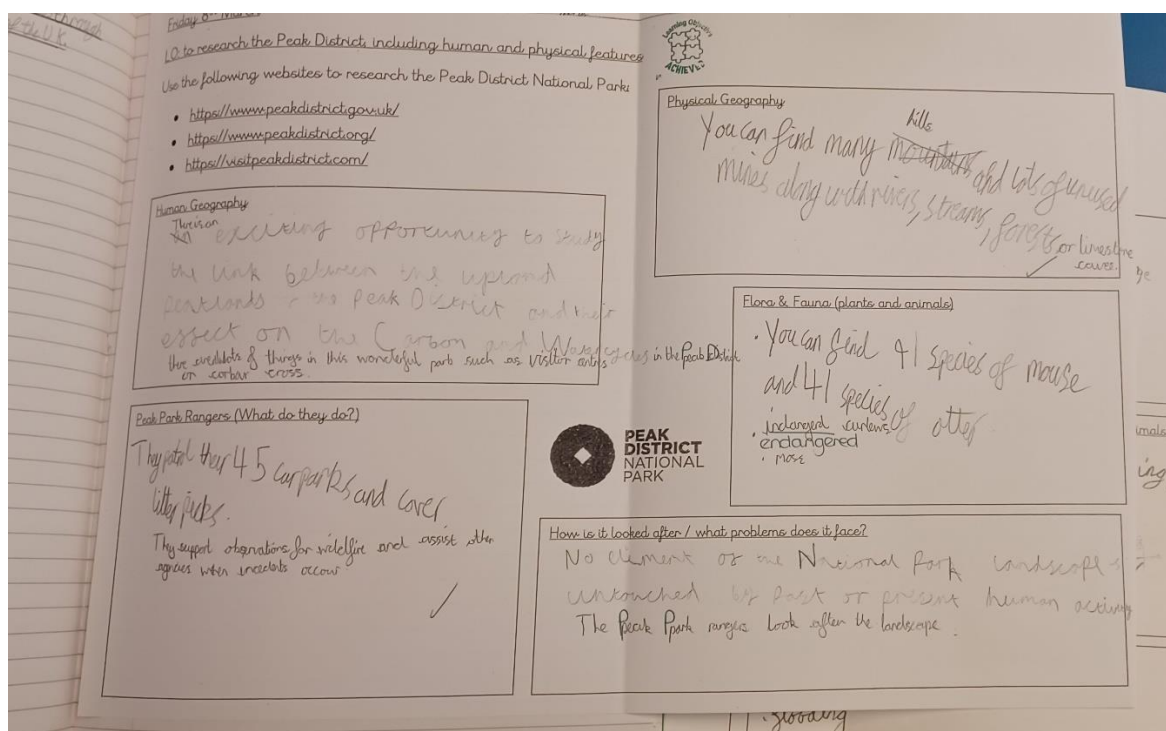 through
the U.K.
Friday 8th March
LO to research the Peak District including human and physical features
Use the following websites to research the Peak District National Park:
• https://www.peakdistrict.gov.uk/
• https://www.peakdistrict.org/
• https://visitpeakdistrict.com/
Learning Objective
ACHIEVED
Human Geography
There is an
exciting opportunity to study
the link between the upland
peatlands the Peak District and their
effect on the Carbon and Water cycles in the Peak District
lots of things in this wonderful park such as visitor
or corbar cross.
Physical Geography
hills
You can find many mountains and lots of unused
mines along with rivers, streams, forests, or limestone
caves.
Flora & Fauna (plants and animals)
• You can find 41 species of mouse
and 41 species of otter
• indangerd curlews
endangered
• mose
Peak Park Rangers (What do they do?)
They patrol ther 45 car parks and cover
litter picks.
They support observations for wildfire and assist other
agencies when occour
PEAK
DISTRICT
NATIONAL
PARK
How is it looked after / what problems does it face?
No element of the National Park landscape is
untouched by past or present human activity
The Peak Ppark rangers look after the landscape.
ing
flooding